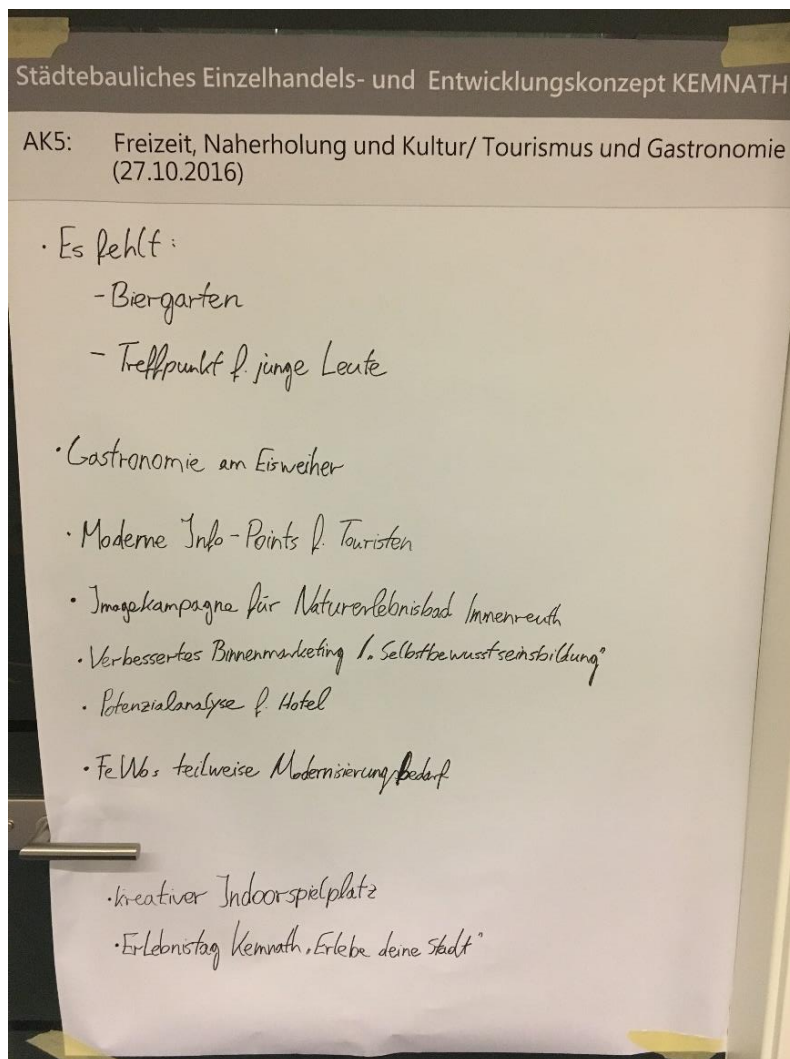 Städtebauliches Einzelhandels- und Entwicklungskonzept KEMNATH
AK5: Freizeit, Naherholung und Kultur/ Tourismus und Gastronomie
(27.10.2016)
· Es fehlt:
- Biergarten
- Treffpunkt f. junge Leute
· Gastronomie am Eisweiher
· Moderne Info-Points f. Touristen
· Imagekampagne für Naturerlebnisbad Immenreuth
· Verbessertes Binnenmarketing /„Selbstbewusstseinsbildung"
· Potenzialanalyse f. Hotel
· FeWos teilweise Modernisierungsbedarf
· kreativer Indoorspielplatz
· Erlebnistag Kemnath „Erlebe deine Stadt"